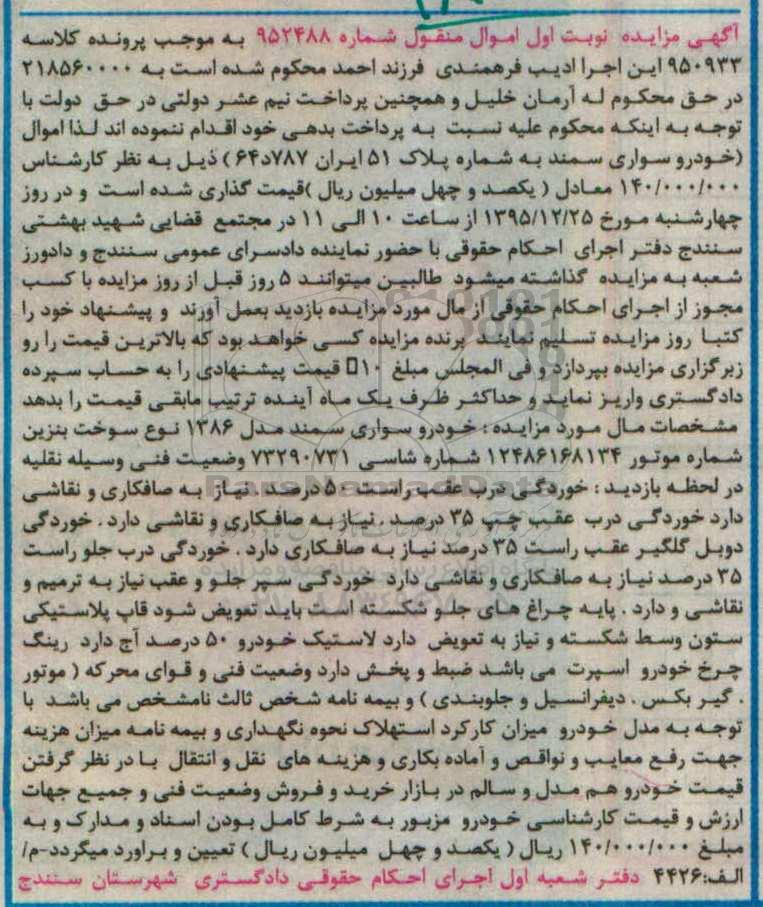 آگهی مزایده نوبت اول اموال منقول شماره ۹۵۲۴۸۸ به موجب پرونده کلاسه
۹۵۰۹۳۳ این اجرا ادیب فرهمندی فرزند احمد محکوم شده است به ۲۱۸۵۶۰۰۰۰
در حق محکوم له آرمان خلیل و همچنین پرداخت نیم عشر دولتی در حق دولت با
توجه به اینکه محکوم علیه نسبت به پرداخت بدهی خود اقدام ننموده اند لذا اموال
(خودرو سواری سمند به شماره پلاک ۵۱ ایران ۷۸۷د۶۴ ) ذیل به نظر کارشناس
۱۴۰/۰۰۰/۰۰۰ معادل ( یکصد و چهل میلیون ریال )قیمت گذاری شده است و در روز
چهارشنبه مورخ ۱۳۹۵/۱۲/۲۵ از ساعت ۱۰ الی ۱۱ در مجتمع قضایی شهید بهشتی
سنندج دفتر اجرای احکام حقوقی با حضور نماینده دادسرای عمومی سنندج و دادورز
شعبه به مزایده گذاشته میشود طالبین میتوانند ۵ روز قبل از روز مزایده با کسب
مجوز از اجرای احکام حقوقی از مال مورد مزایده بازدید بعمل آورند و پیشنهاد خود را
کتبا روز مزایده تسلیم نمایند برنده مزایده کسی خواهد بود که بالاترین قیمت را رو
زبرگزاری مزایده بپردازد و فی المجلس مبلغ ۱۰ قیمت پیشنهادی را به حساب سپرده
دادگستری واریز نماید و حداکثر ظرف یک ماه آینده ترتیب مابقی قیمت را بدهد
مشخصات مال مورد مزایده : خودرو سواری سمند مدل ۱۳۸۶ نوع سوخت بنزین
شماره موتور ۱۲۴۸۶۱۶۸۱۳۴ شماره شاسی ۷۳۲۹۰۷۳۱ وضعیت فنی وسیله نقلیه
در لحظه بازدید : خوردگی درب عقب راست ۵۰ درصد . نیاز به صافکاری و نقاشی
دارد خوردگی درب عقب چپ ۳۵ درصد . نیاز به صافکاری و نقاشی دارد . خوردگی
دوبل گلگیر عقب راست ۳۵ درصد نیاز به صافکاری دارد . خوردگی درب جلو راست
۳۵ درصد نیاز به صافکاری و نقاشی دارد خوردگی سپر جلو و عقب نیاز به ترمیم و
نقاشی و دارد . پایه چراغ های جلو شکسته است باید تعویض شود قاپ پلاستیکی
ستون وسط شکسته و نیاز به تعویض دارد لاستیک خودرو ۵۰ درصد آج دارد رینگ
چرخ خودرو اسپرت می باشد ضبط و پخش دارد وضعیت فنی و قوای محرکه ( موتور
. گیر بکس . دیفرانسیل و جلوبندی ) و بیمه نامه شخص ثالث نامشخص می باشد با
توجه به مدل خودرو میزان کارکرد استهلاک نحوه نگهداری و بیمه نامه میزان هزینه
جهت رفع معایب و نواقص و آماده بکاری و هزینه های نقل و انتقال با در نظر گرفتن
قیمت خودرو هم مدل و سالم در بازار خرید و فروش وضعیت فنی و جمیع جهات
ارزش و قیمت کارشناسی خودرو مزبور به شرط کامل بودن اسناد و مدارک و به
مبلغ ۱۴۰/۰۰۰/۰۰۰ ریال ( یکصد و چهل میلیون ریال ) تعیین و براورد میگردد-م/
الف:۴۴۲۶ دفتر شعبه اول اجرای احکام حقوقی دادگستری شهرستان سنندج
ParsNamadData